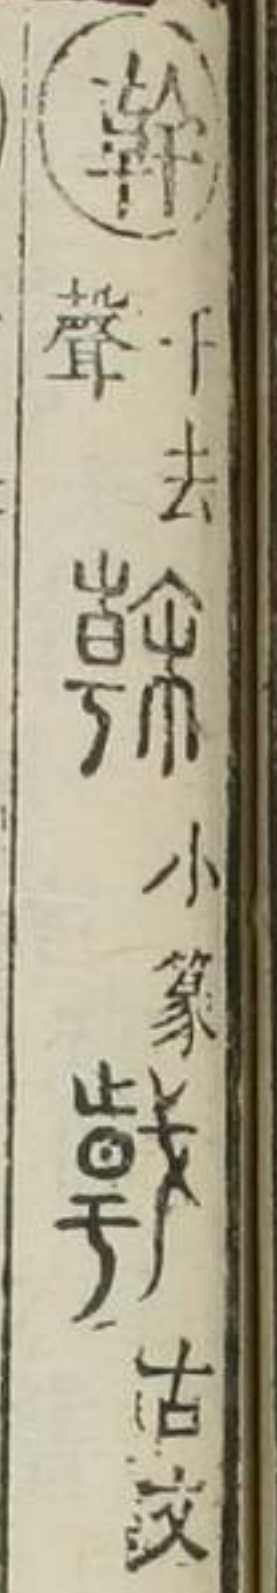 幹干去聲榦小篆古文